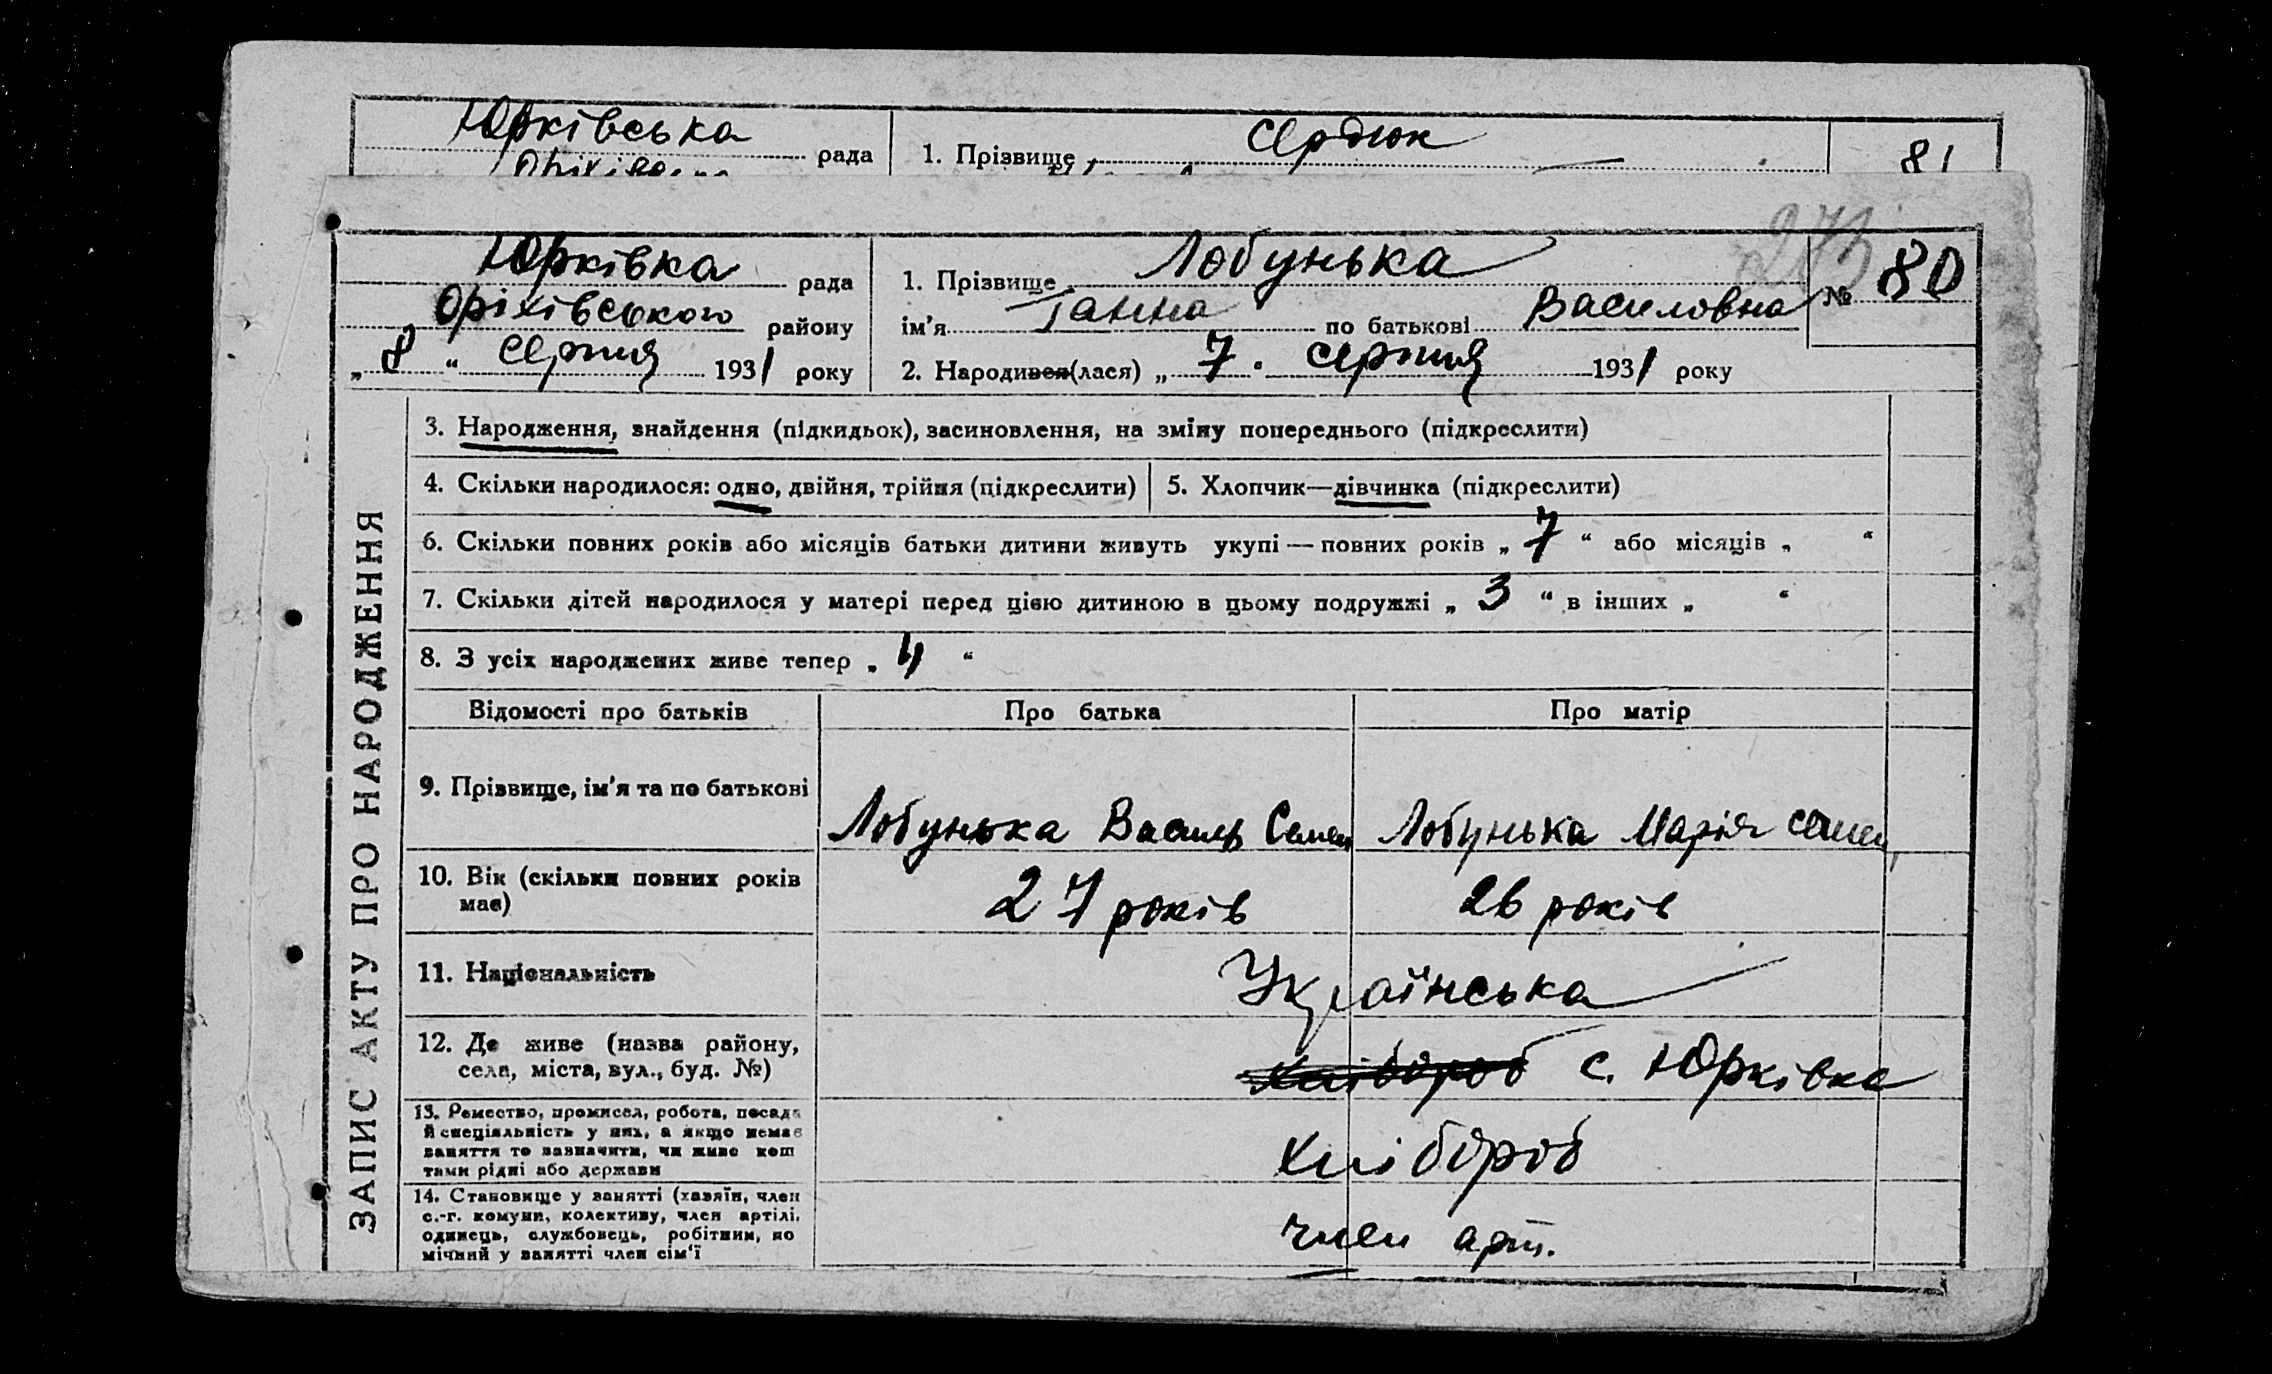 Юрківська рада
1. Прізвище Сердюк
81
273
Юрківка рада
Оріхівського району
„8“ Серпня 1931 року
1. Прізвище Лобунька
ім'я Ганна по батькові Василовна
№ 80
2. Народився(лася) „7. Серпня 1931 року
ЗАПИС АКТУ ПРО НАРОДЖЕННЯ
3. Народження, знайдення (підкидьок), засиновлення, на зміну попереднього (підкреслити)
4. Скільки народилося: одно, двійня, трійня (підкреслити)
5. Хлопчик—дівчинка (підкреслити)
6. Скільки повних років або місяців батьки дитини живуть укупі — повних років „7“ або місяців „ “
7. Скільки дітей народилося у матері перед цією дитиною в цьому подружжі „3“ в інших „ “
8. З усіх народжених живе тепер „4“
Відомості про батьків
Про батька
Про матір
9. Прізвище, ім'я та по батькові
Лобунька Василь Семен
Лобунька Марія Семен
10. Вік (скільки повних років
має)
27 років
26 років
11. Національність
Українська
12. Де живе (назва району,
села, міста, вул., буд. №)
Хлібороб с. Юрківка
13. Ремество, промисел, робота, посада
й спеціяльність у них, а якщо немає
заняття то зазначити, чи живе кош
тами рідні або держави
Хлібороб
14. Становище у занятті (хазяїн, член
с.-г. комуни, колективу, член артілі,
одинець, службовець, робітник, по
мічний у занятті член сім'ї
член арт.